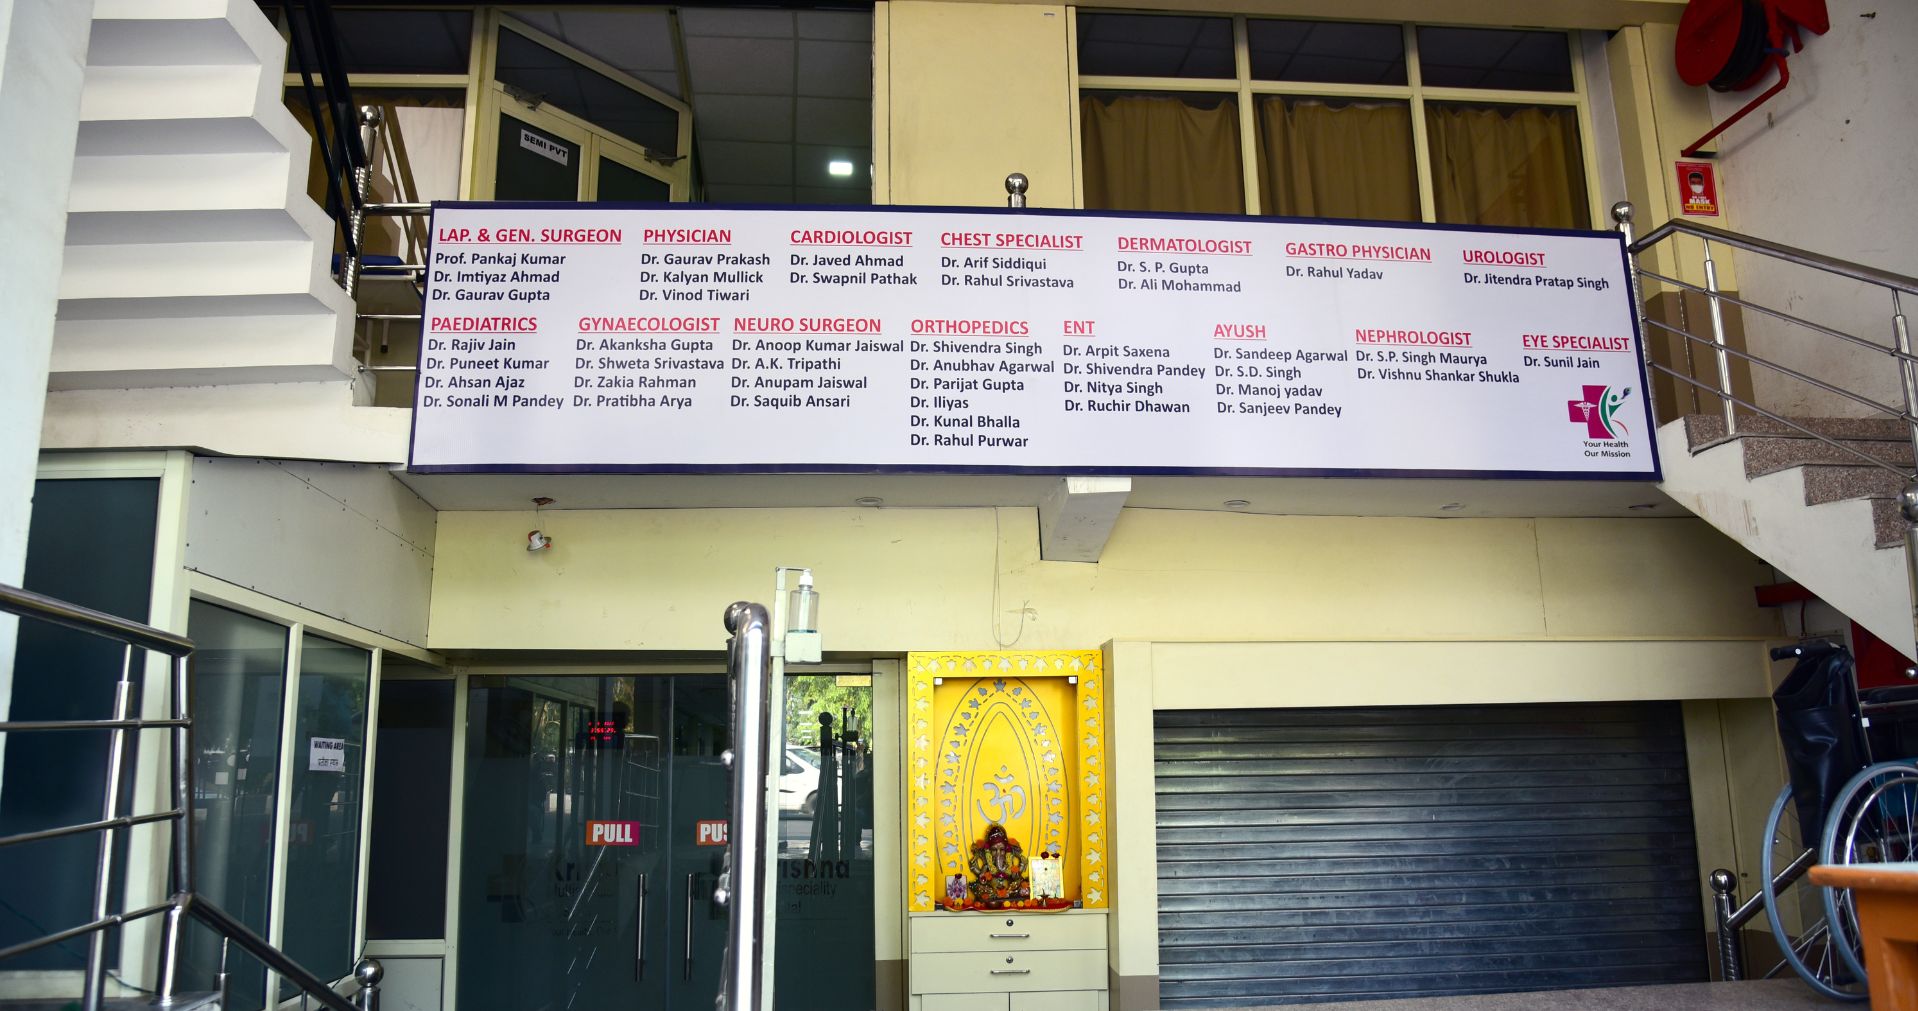 SEMI PVT
LAP. & GEN. SURGEON
Prof. Pankaj Kumar
Dr. Imtiyaz Ahmad
Dr. Gaurav Gupta
PHYSICIAN
Dr. Gaurav Prakash
Dr. Kalyan Mullick
Dr. Vinod Tiwari
CARDIOLOGIST
Dr. Javed Ahmad
Dr. Swapnil Pathak
CHEST SPECIALIST
Dr. Arif Siddiqui
Dr. Rahul Srivastava
DERMATOLOGIST
Dr. S. P. Gupta
Dr. Ali Mohammad
GASTRO PHYSICIAN
Dr. Rahul Yadav
UROLOGIST
Dr. Jitendra Pratap Singh
PAEDIATRICS
Dr. Rajiv Jain
Dr. Puneet Kumar
Dr. Ahsan Ajaz
Dr. Sonali M Pandey
GYNAECOLOGIST
Dr. Akanksha Gupta
Dr. Shweta Srivastava
Dr. Zakia Rahman
Dr. Pratibha Arya
NEURO SURGEON
Dr. Anoop Kumar Jaiswal
Dr. A.K. Tripathi
Dr. Anupam Jaiswal
Dr. Saquib Ansari
ORTHOPEDICS
Dr. Shivendra Singh
Dr. Anubhav Agarwal
Dr. Parijat Gupta
Dr. Iliyas
Dr. Kunal Bhalla
Dr. Rahul Purwar
ENT
Dr. Arpit Saxena
Dr. Shivendra Pandey
Dr. Nitya Singh
Dr. Ruchir Dhawan
AYUSH
Dr. Sandeep Agarwal
Dr. S.D. Singh
Dr. Manoj yadav
Dr. Sanjeev Pandey
NEPHROLOGIST
Dr. S.P. Singh Maurya
Dr. Vishnu Shankar Shukla
EYE SPECIALIST
Dr. Sunil Jain
Your Health
Our Mission
MASK
NO ENTRY
WAITING AREA
PULL
ॐ